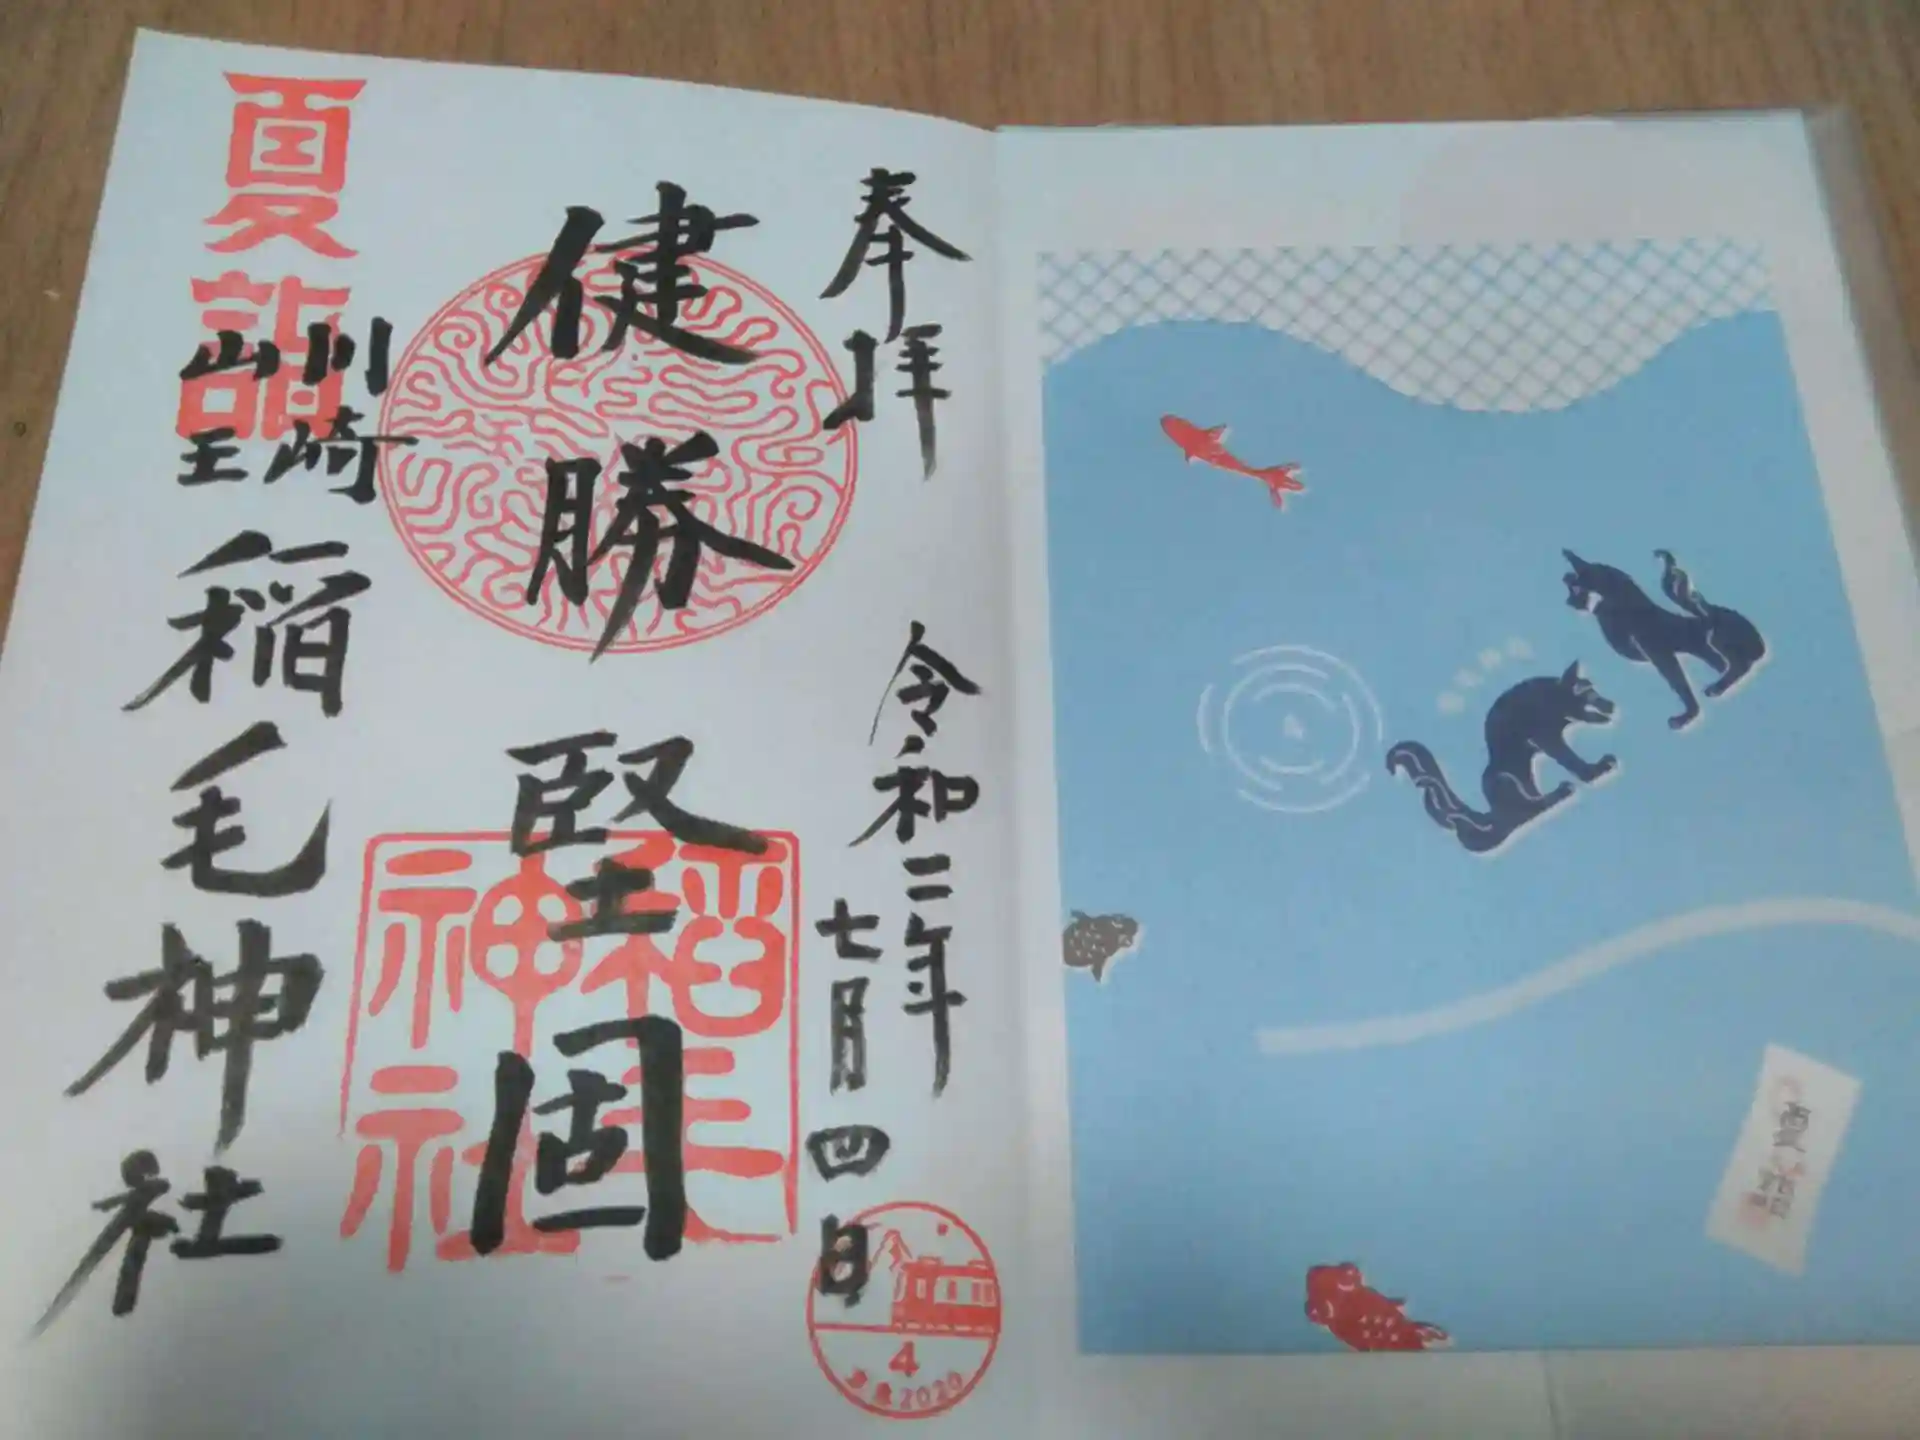 奉拝
令和二年
七月四日
健勝
堅固
夏詣
川崎
山王
稲毛神社
稲毛
神社
4
2020
夏詣